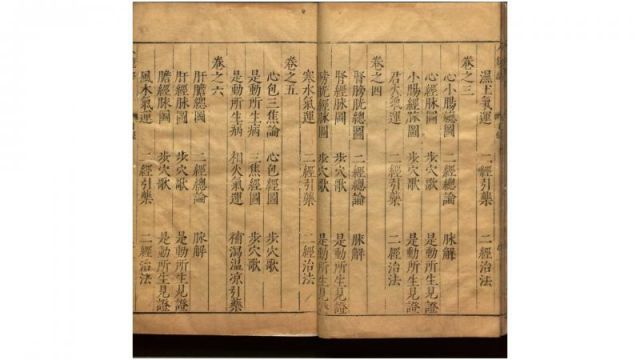 濕土氣運 二經引藥 二經治法
卷之三
心小腸總圖 二經總論 脉解
心經脉圖 步穴歌 是動所生見證
小腸經脉圖 步穴歌 是動所生見證
君火氣運 二經引藥 二經治法
卷之四
腎膀胱總圖 二經總論 脉解
腎經脉圖 步穴歌 是動所生見證
膀胱經脉圖 步穴歌 是動所生見證
寒水氣運 二經引藥 二經治法
卷之五
心包三焦論 心包經圖 步穴歌
是動所生病 三焦經圖 步穴歌
是動所生病 相火氣運 補瀉温凉引藥
卷之六
肝膽總圖 二經總論 脉解
肝經脉圖 步穴歌 是動所生見證
膽經脉圖 步穴歌 是動所生見證
風木氣運 二經引藥 二經治法